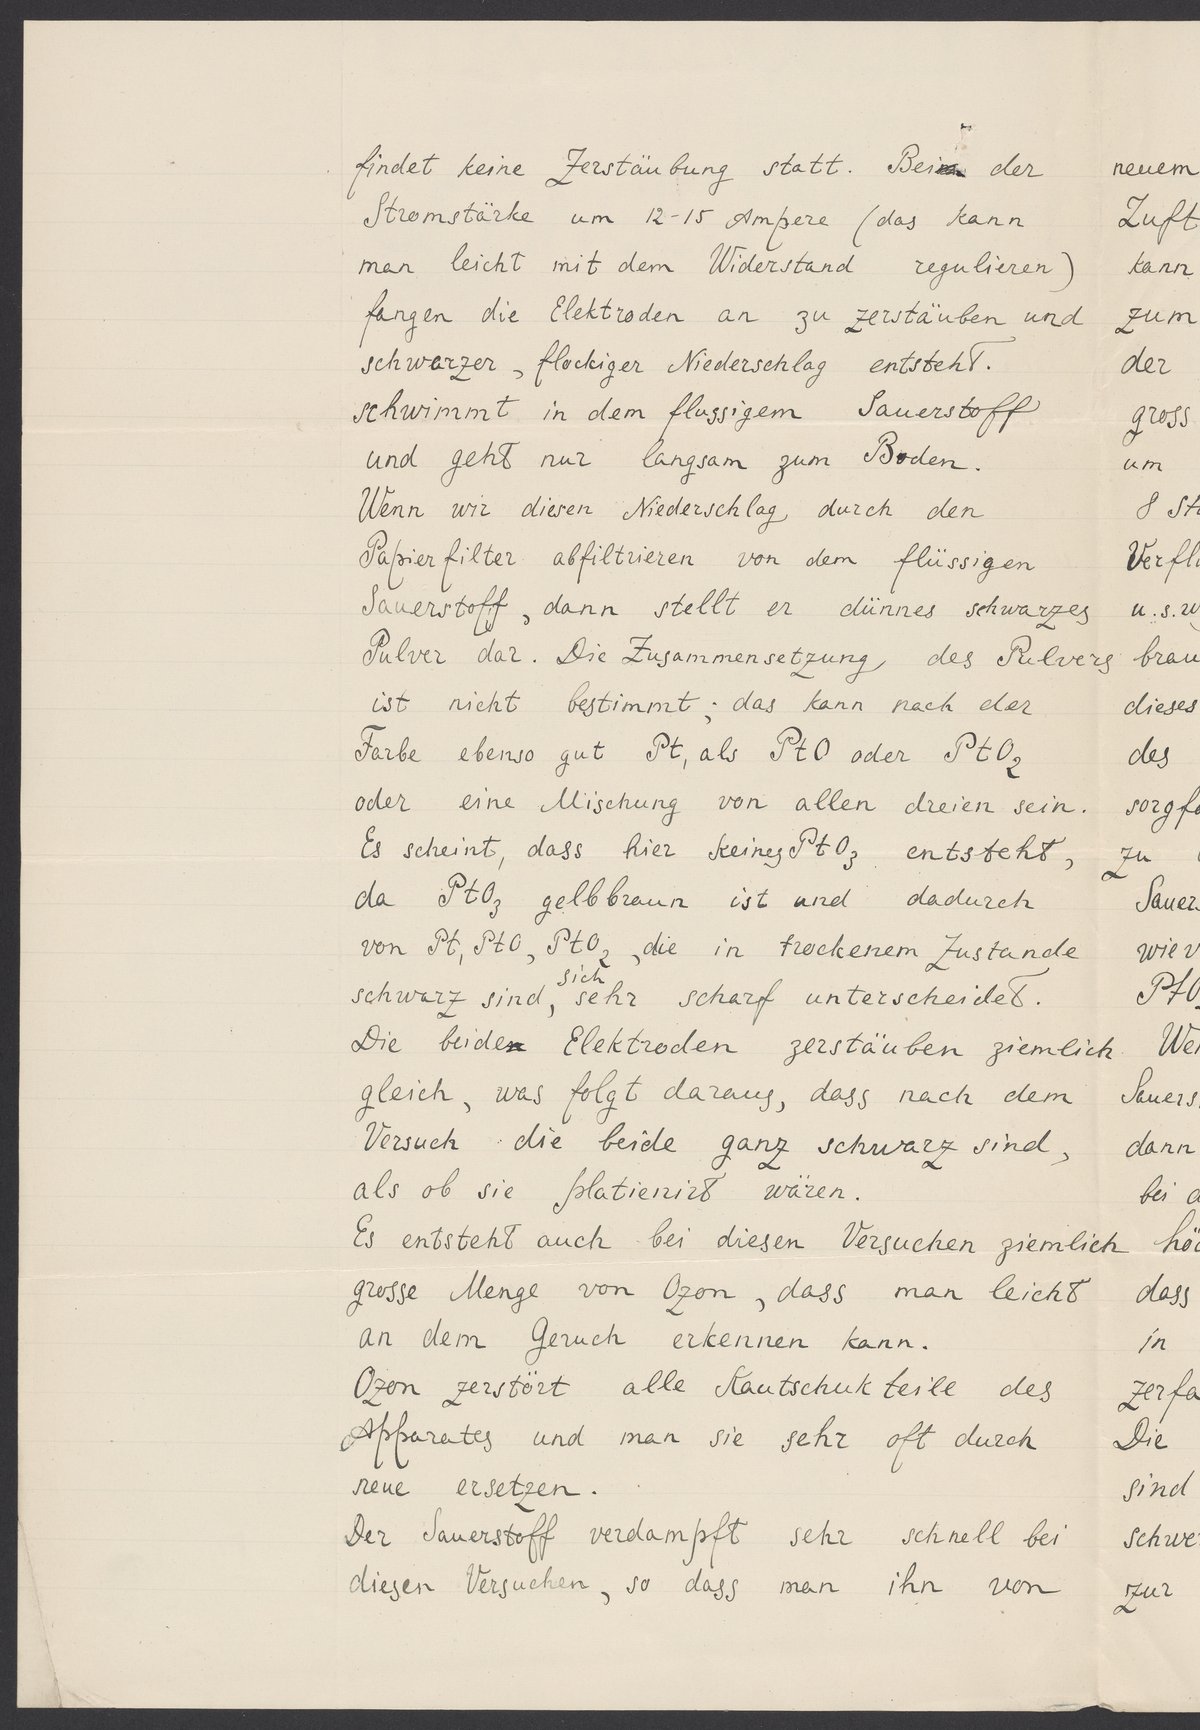 findet keine Zerstäubung statt. Bei der
Stromstärke um 12-15 Ampere (das kann
man leicht mit dem Widerstand regulieren)
fangen die Elektroden an zu zerstäuben und
schwarzer, flockiger Niederschlag entsteht.
schwimmt in dem flussigem Sauerstoff
und geht nur langsam zum Boden.
Wenn wir diesen Niederschlag durch den
Papierfilter abfiltrieren von dem flüssigen
Sauerstoff, dann stellt er dünnes schwarzes
Pulver dar. Die Zusammensetzung des Pulvers
ist nicht bestimmt; das kann nach der
Farbe ebenso gut Pt, als PtO oder PtO2
oder eine Mischung von allen dreien sein.
Es scheint, dass hier keines PtO3 entsteht,
da PtO3 gelbbraun ist und dadurch
von Pt, PtO, PtO2, die in trockenem Zustande
schwarz sind, sich sehr scharf unterscheidet.
Die beiden Elektroden zerstäuben ziemlich
gleich, was folgt daraus, dass nach dem
Versuch die beide ganz schwarz sind,
als ob sie platienirt wären.
Es entsteht auch bei diesen Versuchen ziemlich
grosse Menge von Ozon, dass man leicht
an dem Geruch erkennen kann.
Ozon zerstört alle Kautschukteile des
Apparates und man sie sehr oft durch
neue ersetzen.
Der Sauerstoff verdampft sehr schnell bei
diesen Versuchen, so dass man ihn von
neuem
Zuft
kann
zum
der
gross
um
8 St
Verfl
u.s.w
brau
dieses
des
sorgfä
zu
Sauer
wiev
PtO
We
Sauers
dann
bei
hö
dass
in
zerfa
Die
sind
schwe
zur